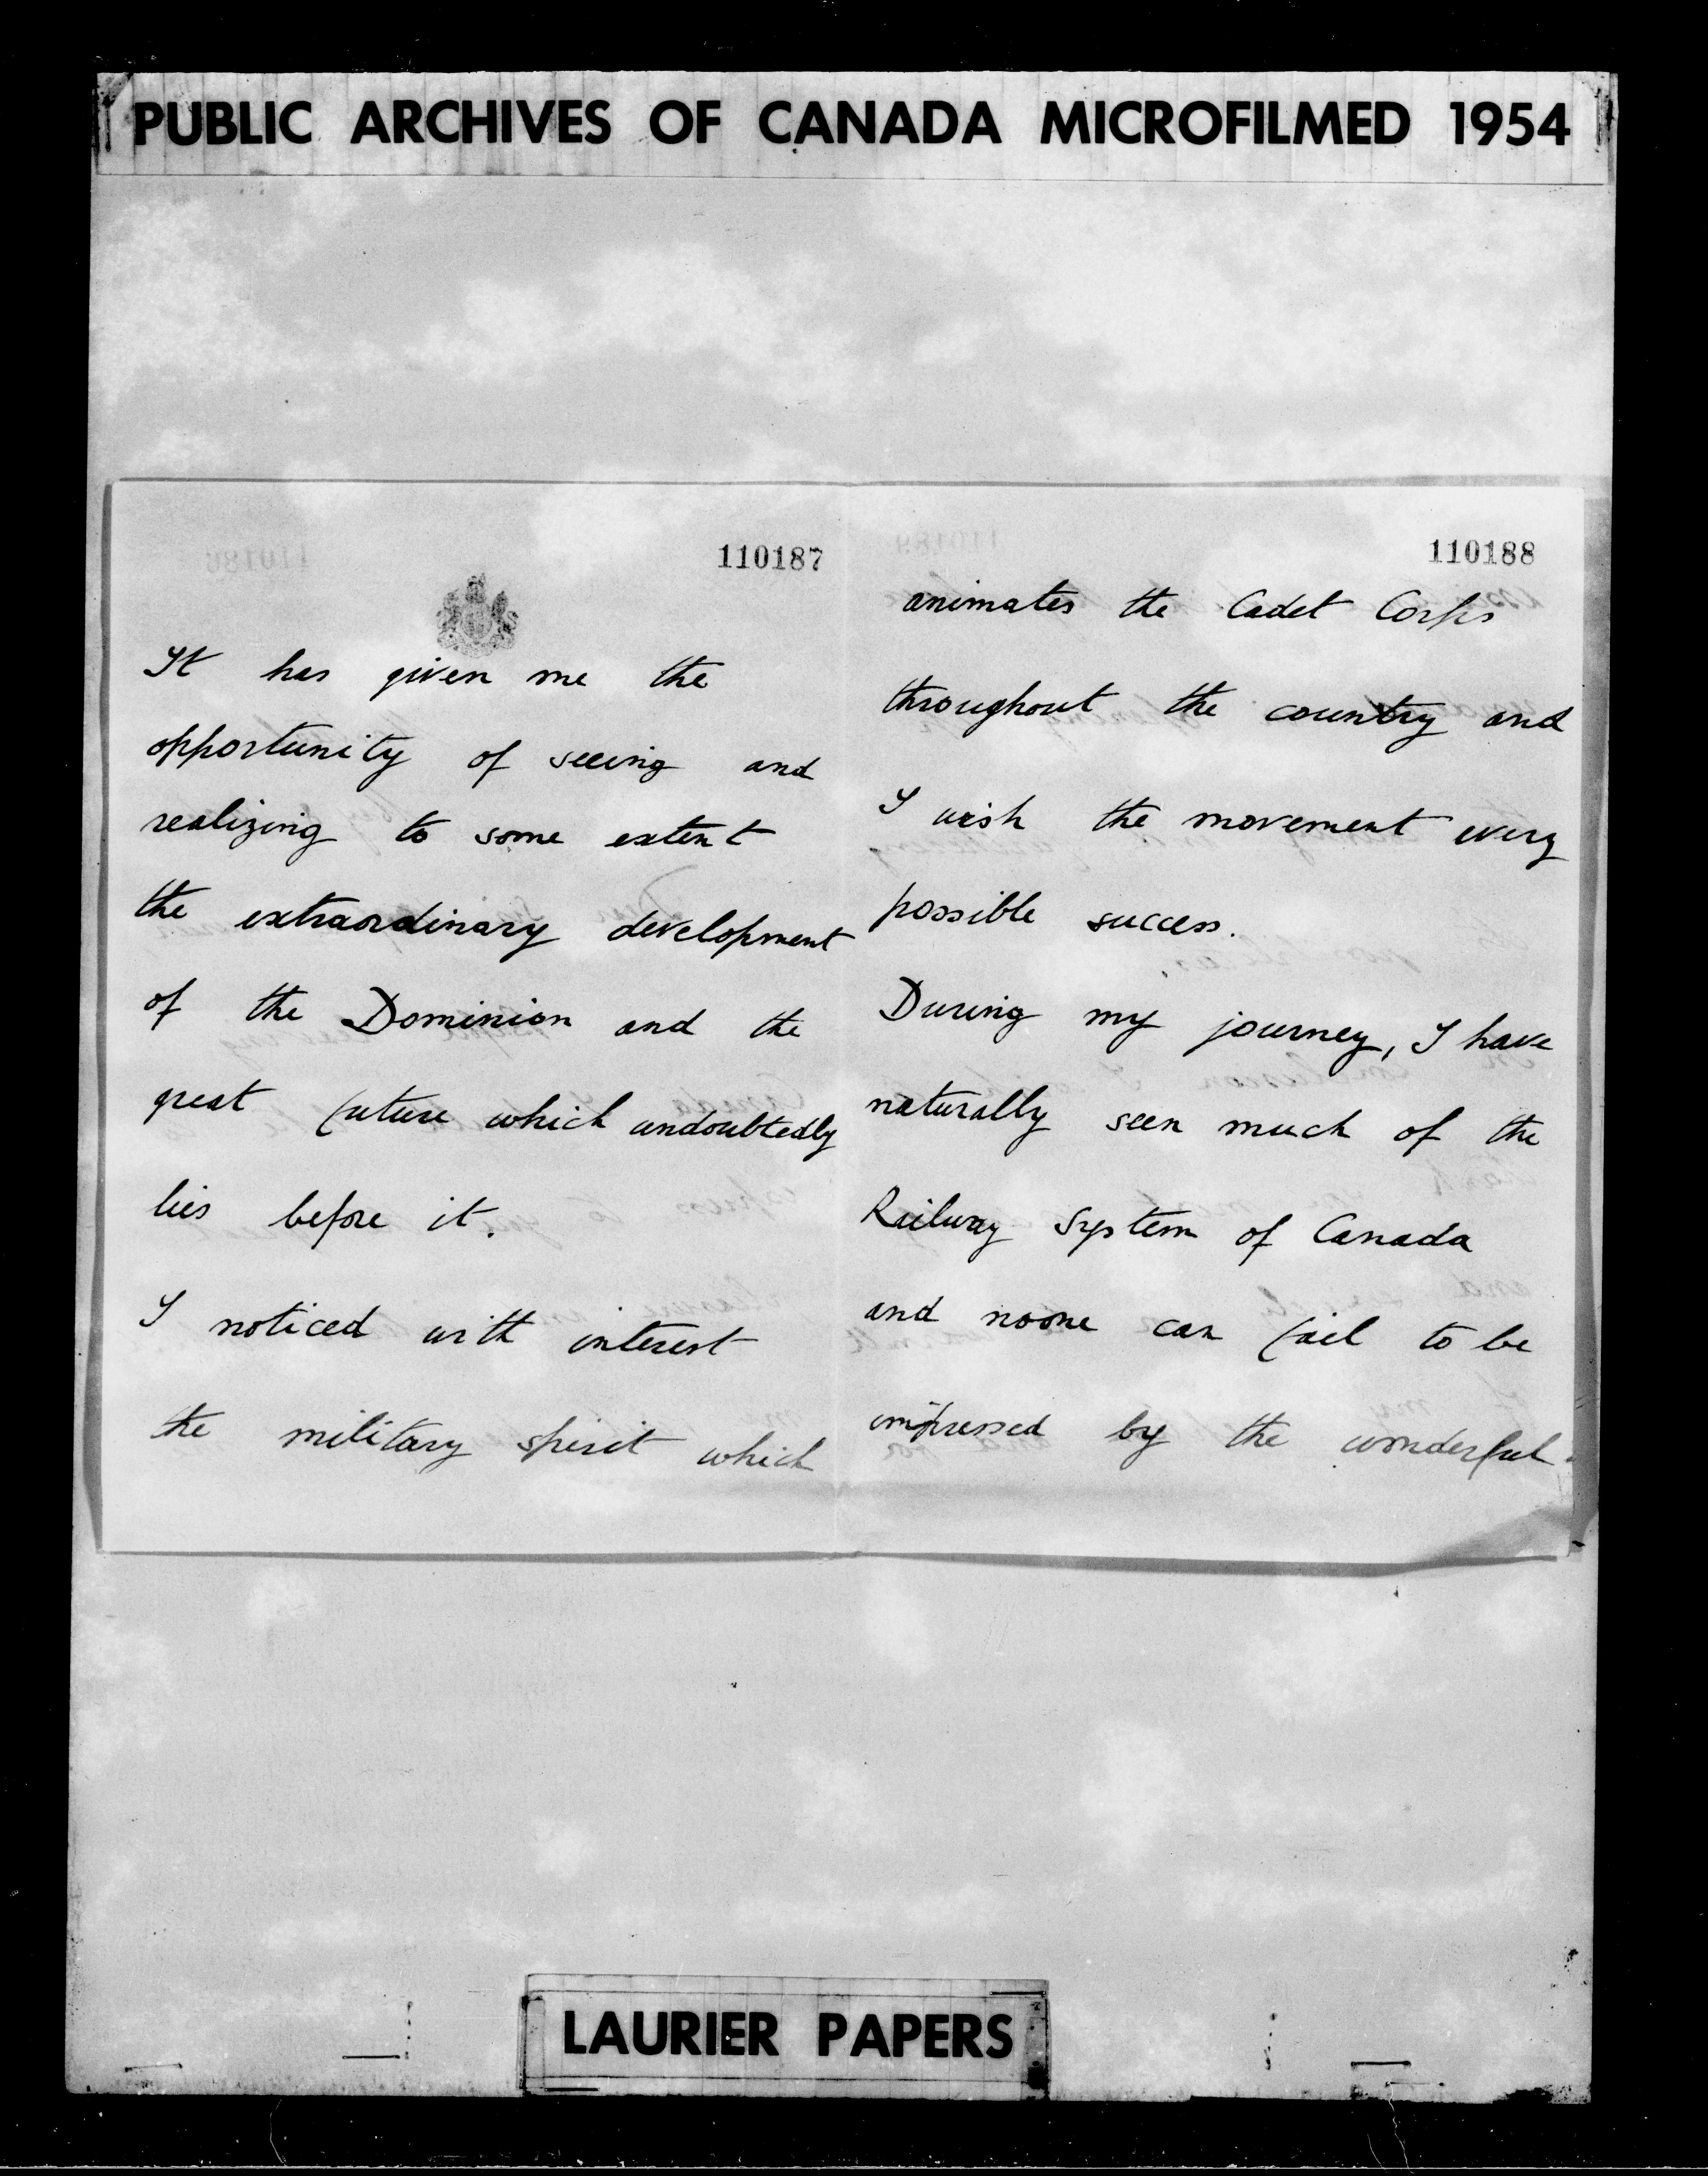 PUBLIC ARCHIVES OF CANADA MICROFILMED 1954
110187
It has given me the
opportunity of seeing and
realizing to some extent
the extraordinary development
of the Dominion and the
great future which undoubtedly
lies before it.
I noticed with interest
the military spirit which
110188
animates the Cadet Corps
throughout the country and
I wish the movement every
possible success.
During my journey, I have
naturally seen much of the
Railway System of Canada
and noone can fail to be
impressed by the wonderful
LAURIER PAPERS